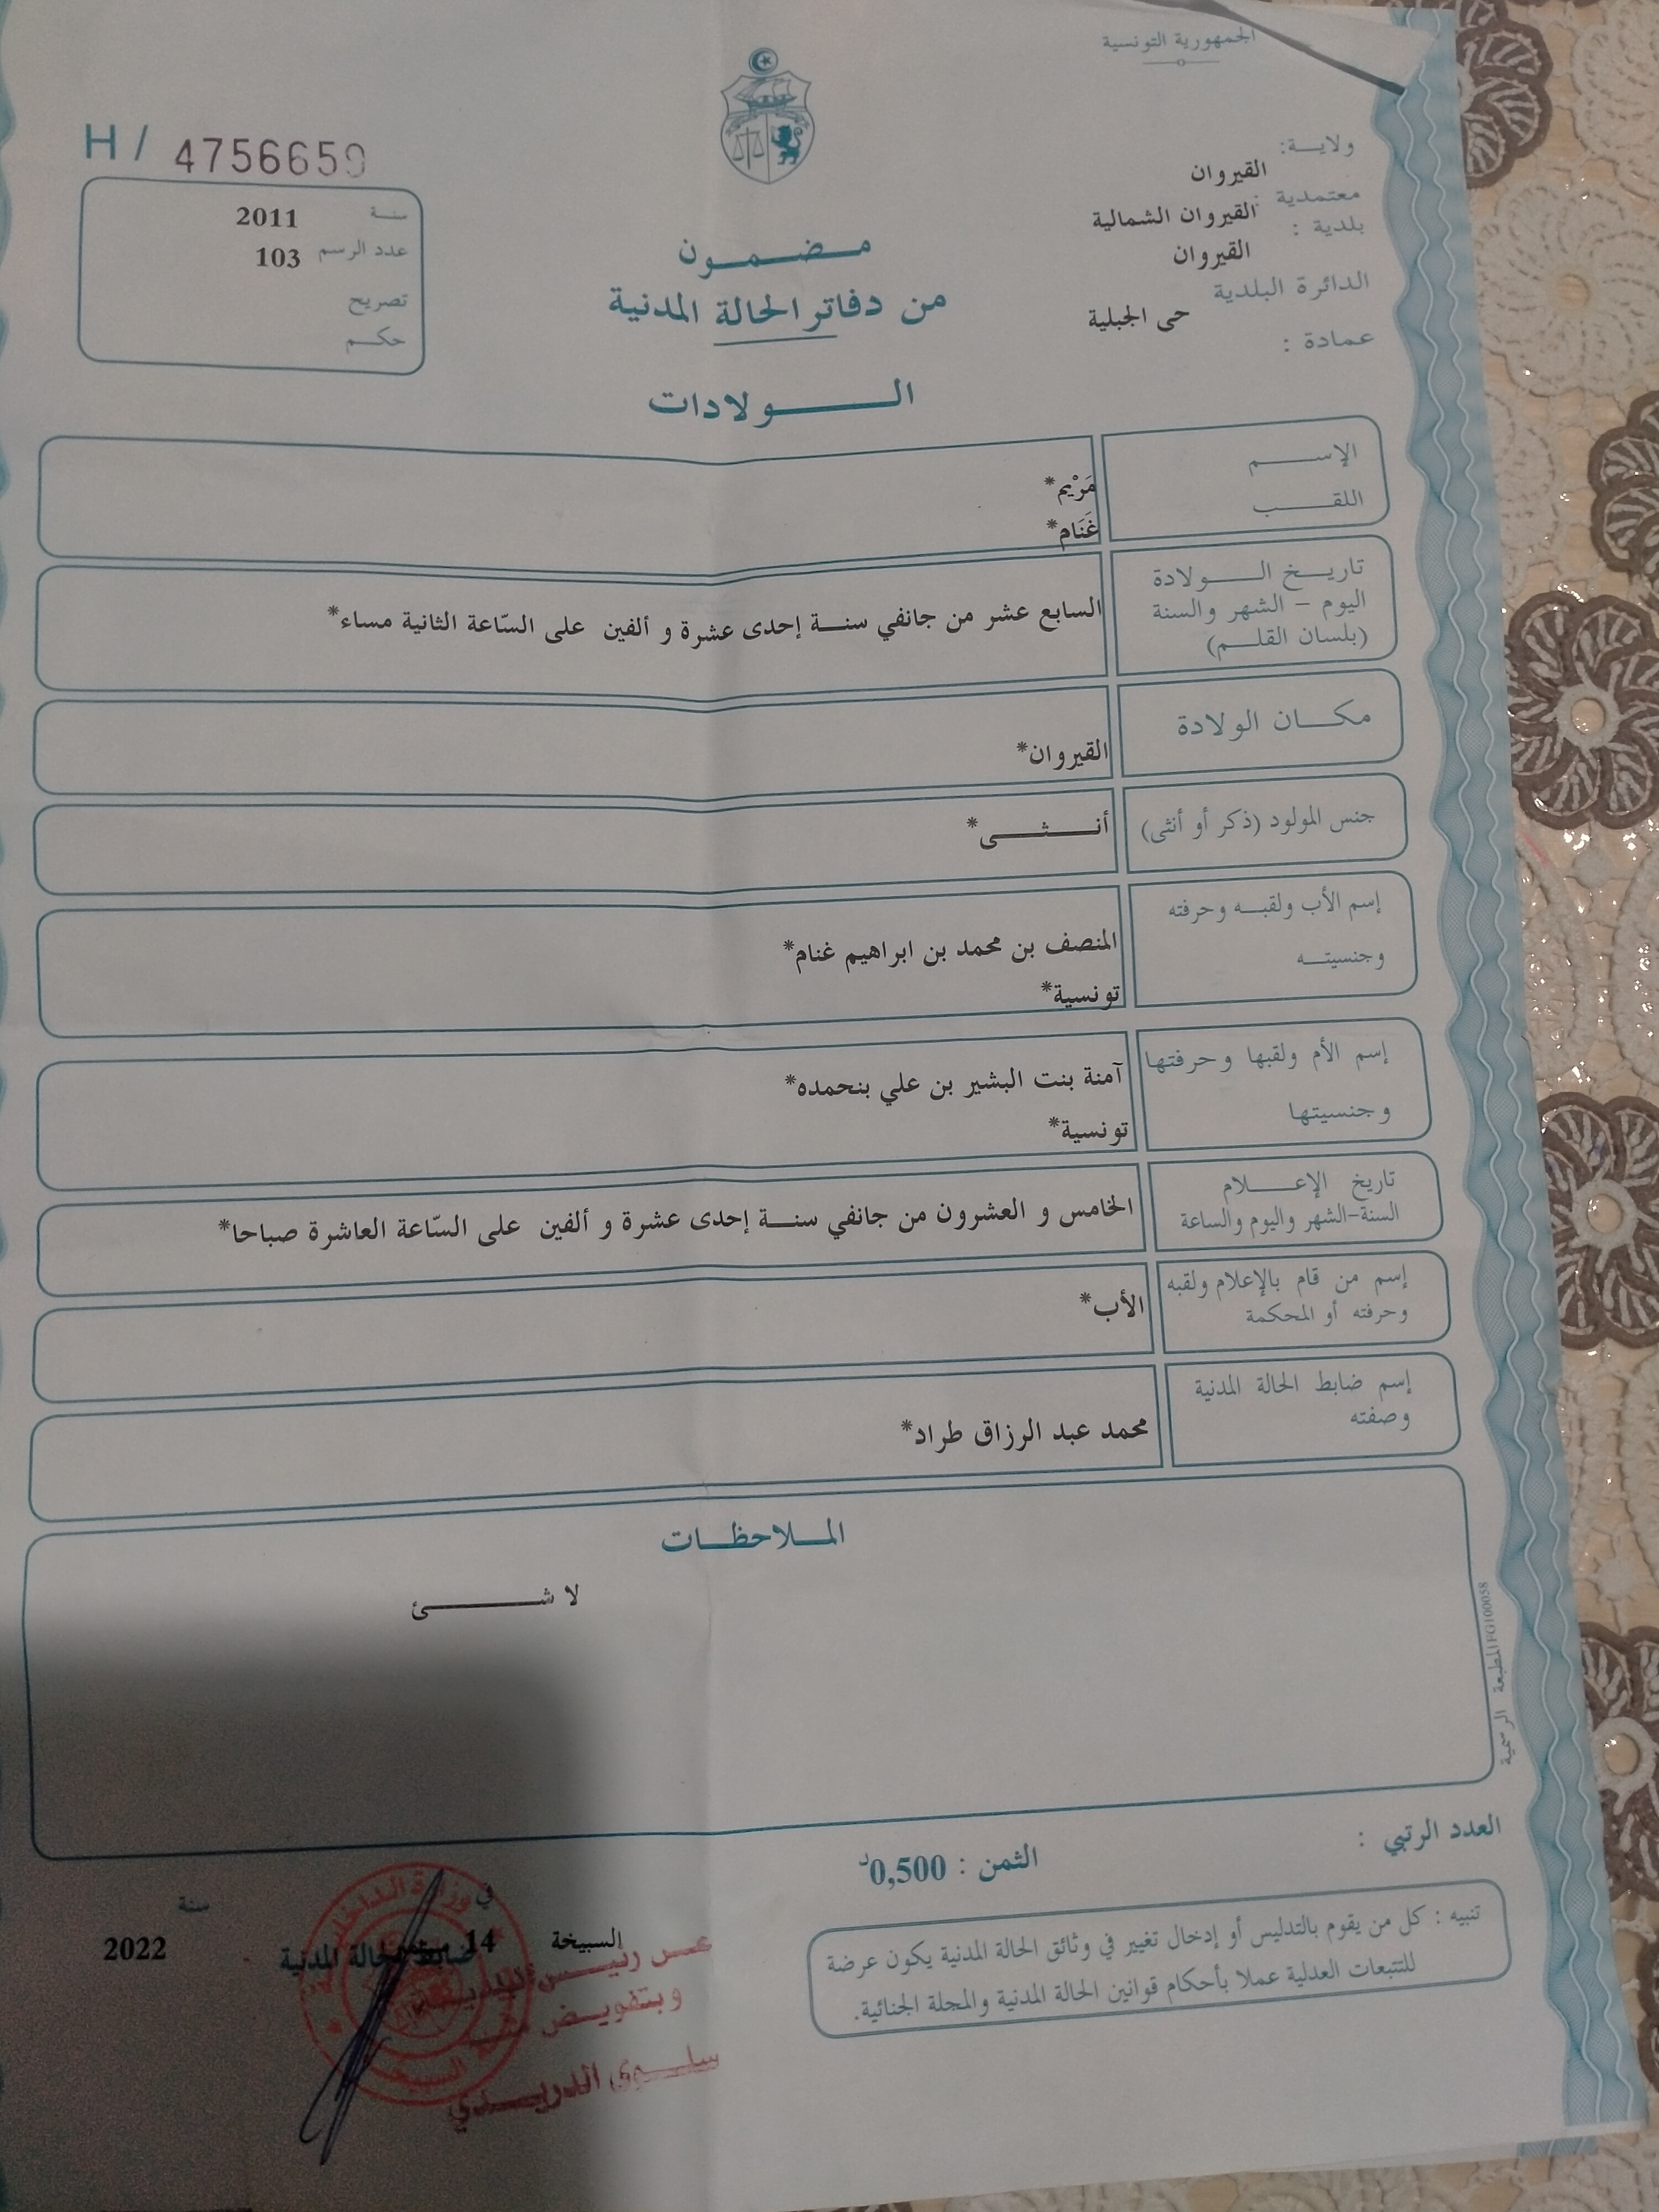 الجمهورية التونسية
ولايـــة:
القيروان
معتمدية :
القيروان الشمالية
بلدية :
القيروان
الدائرة البلدية
حى الجبلية
عمادة :
مـــضـــمـــون
من دفاتر الحالة المدنية
H / 4756659
سنـــة 2011
عدد الرسم 103
تصريح
حكـــم
الـــــولادات
الإســـــم
مَرْيم*
اللقـــــب
غَنَام*
تاريـــخ الـــــولادة
اليوم – الشهر والسنة
(بلسان القلـــم)
السابع عشر من جانفي سنـــة إحدى عشرة و ألفين على السّاعة الثانية مساء*
مكـــان الولادة
القيروان*
جنس المولود (ذكر أو أنثى)
أنـــــثـــــى*
إسم الأب ولقبـــه وحرفته
وجنسيتـــه
المنصف بن محمد بن ابراهيم غنام*
تونسية*
إسم الأم ولقبها وحرفتها
وجنسيتها
آمنة بنت البشير بن علي بنحمده*
تونسية*
تاريخ الإعـــــلام
السنة-الشهر واليوم والساعة
الخامس و العشرون من جانفي سنـــة إحدى عشرة و ألفين على السّاعة العاشرة صباحا*
إسم من قام بالإعلام ولقبه
وحرفته أو المحكمة
الأب*
إسم ضابط الحالة المدنية
وصفته
محمد عبد الرزاق طراد*
المـــلاحظـــات
لا شـــــــئ
المطبعة الرسمية FG100058
العدد الرتبي :
الثمن : 0,500د
تنبيه : كل من يقوم بالتدليس أو إدخال تغيير في وثائق الحالة المدنية يكون عرضة
للتتبعات العدلية عملا بأحكام قوانين الحالة المدنية والمجلة الجنائية.
في
سنة
السبيخة
14
2022
ضابط الحالة المدنية
وزارة الداخلية
عـــن رئيـــس البلديـــة
وبتفويـــض منـــه
سلـــوى الدريـــدي